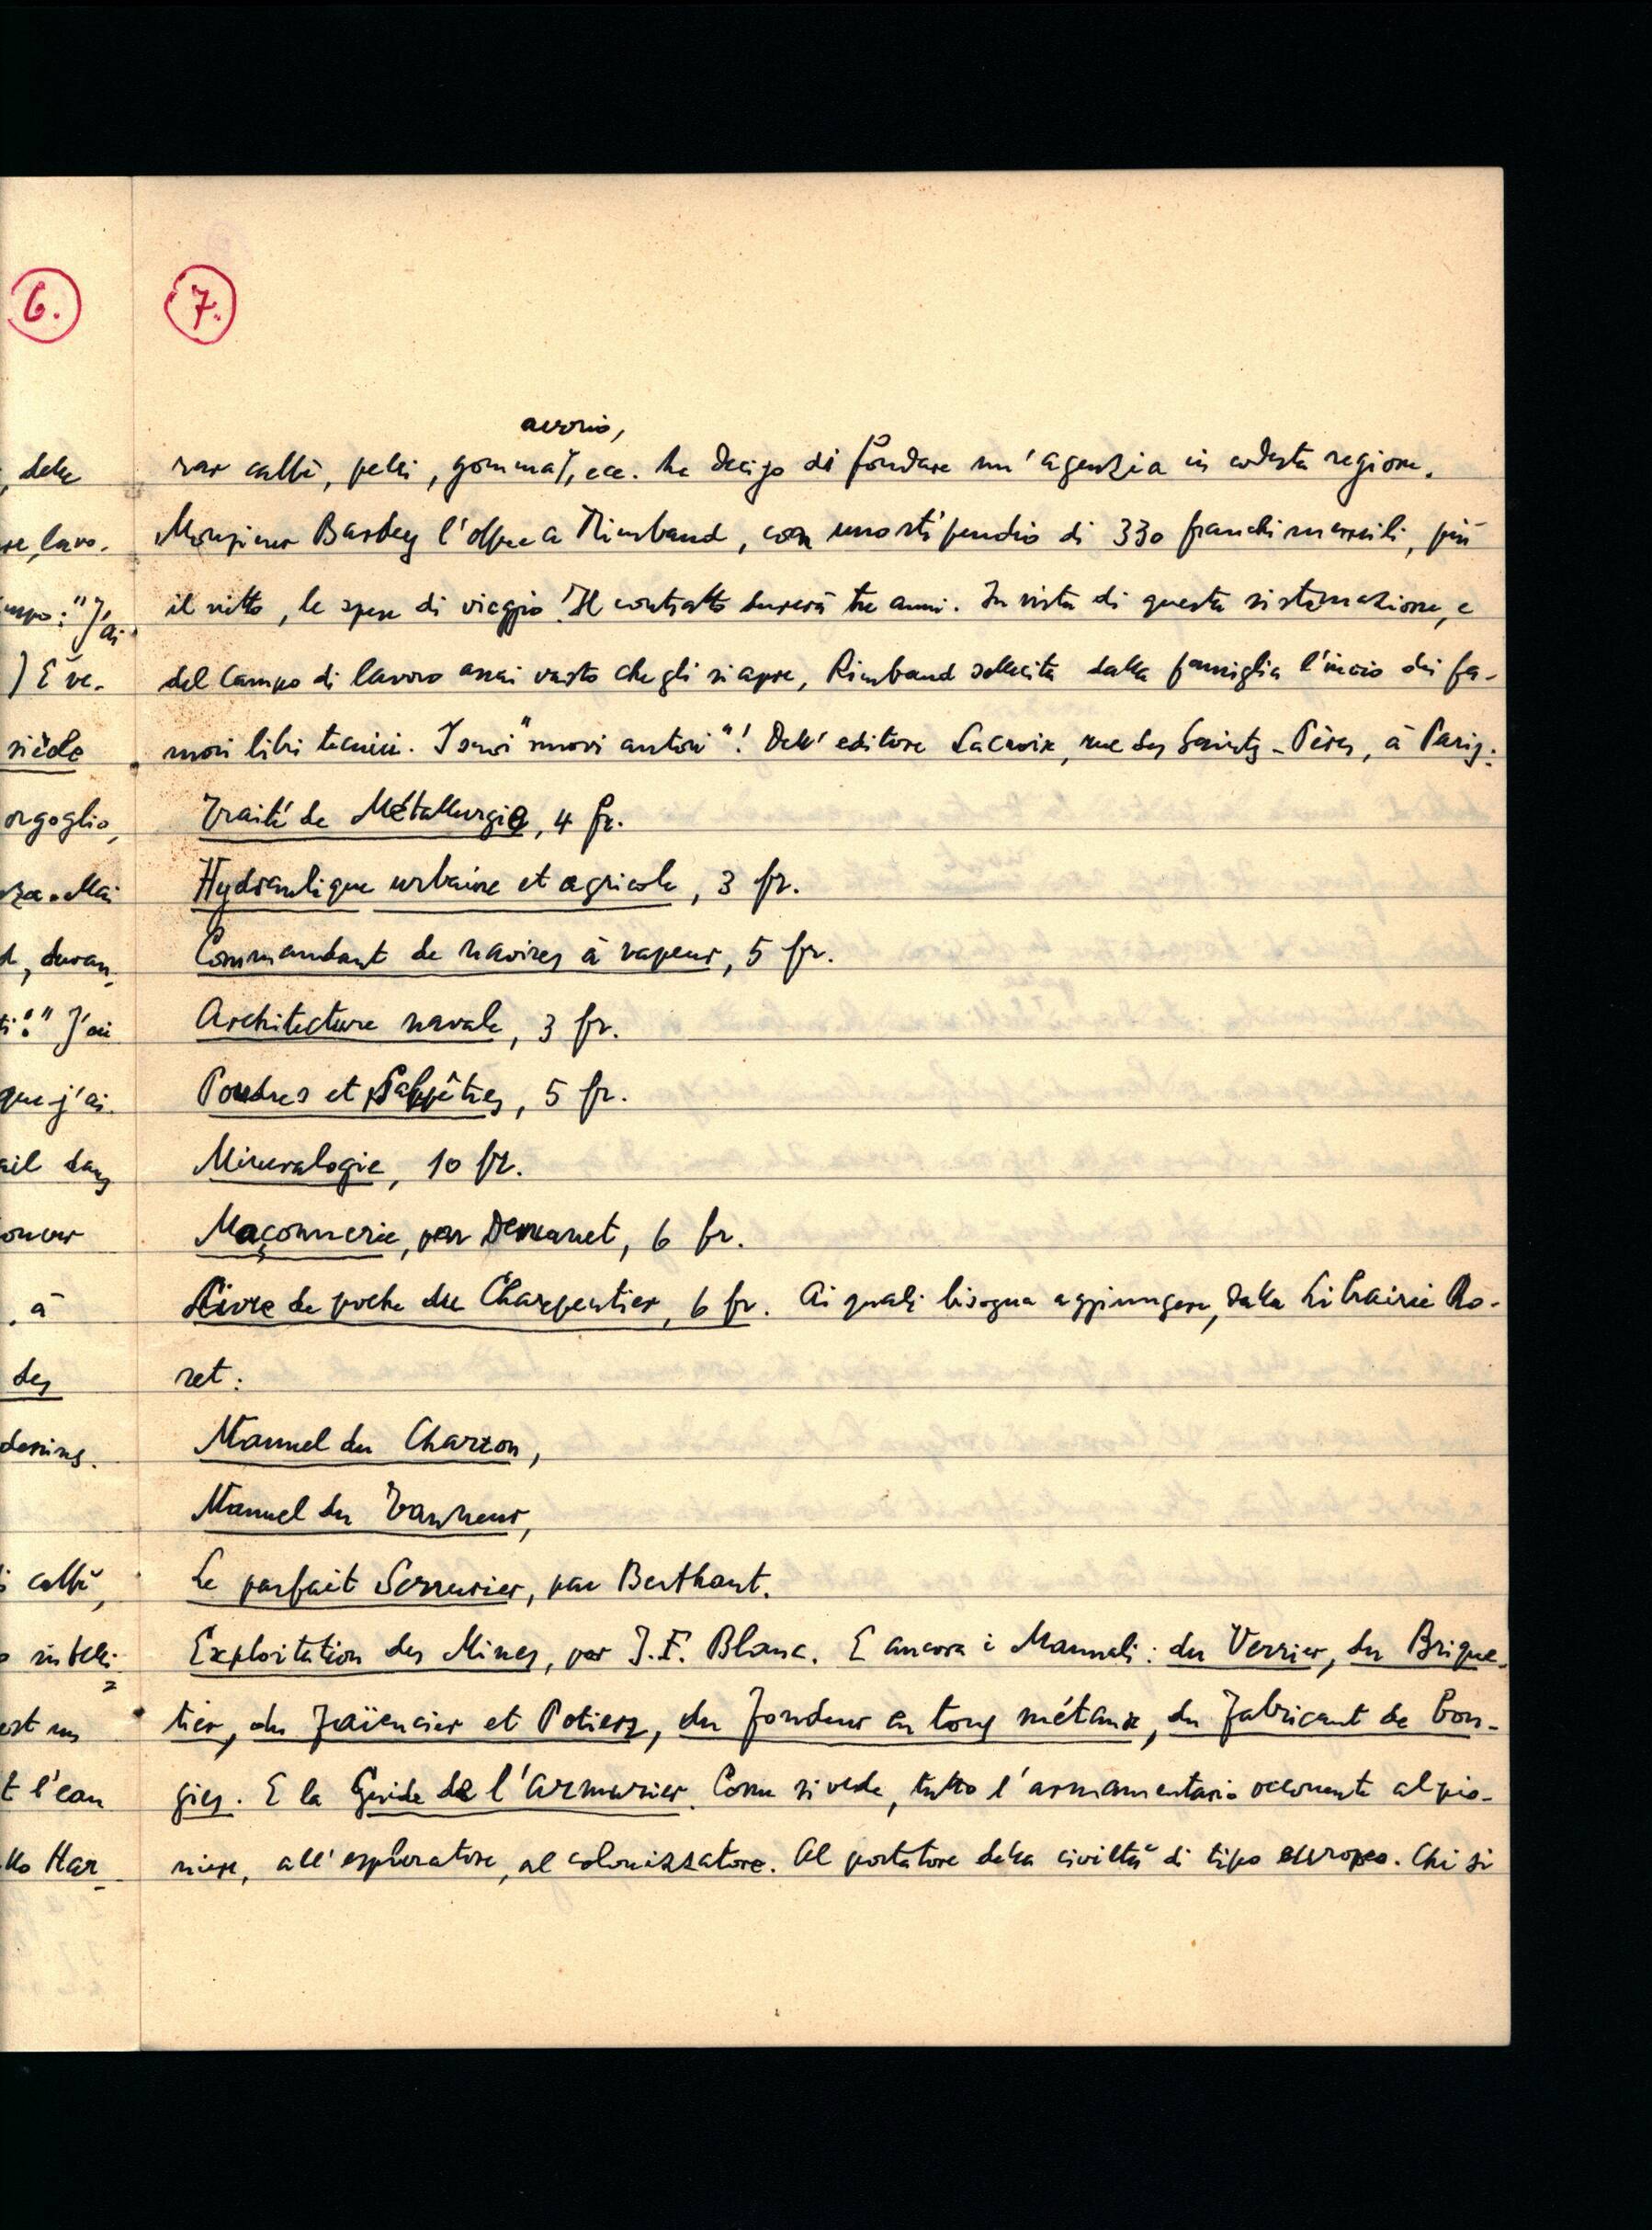 6.
7.
avorio,
rar caffè, pelli, gomma, ecc. ha deciso di fondare un'agenzia in codesta regione.
Monsieur Bardey l'offre a Rimbaud, con uno stipendio di 330 franchi mensili, più
il vitto, le spese di viaggio. Il contratto durerà tre anni. In vista di questa sistemazione, e
del campo di lavoro assai vasto che gli si apre, Rimbaud sollecita dalla famiglia l'invio dei fa-
mosi libri tecnici. I suoi "nuovi autori"! Dell'editore Lacroix, rue des Saints-Pères, à Paris:
Traité de Métallurgie, 4 fr.
Hydraulique urbaine et agricole, 3 fr.
Commandant de navires à vapeur, 5 fr.
Architecture navale, 3 fr.
Poudres et Salpêtres, 5 fr.
Mineralogie, 10 fr.
Maçonnerie, par Demanet, 6 fr.
Livre de poche du Charpentier, 6 fr. Ai quali bisogna aggiungere, dalla Librairie Ro-
ret:
Manuel du Charron,
Manuel du Tanneur,
Le parfait Serrurier, par Berthaut.
Exploitation des Mines, par J.F. Blanc. E ancora i Manuali: du Verrier, du Brique-
tier, du Faïencier et Potier, du Fondeur en tous métaux, du Fabricant de Bou-
gies. E la Guide de l'Armurier. Come si vede, tutto l'armamentario occorrente al pio-
niere, all'esploratore, al colonizzatore. Al portatore della civiltà di tipo europeo. Chi si